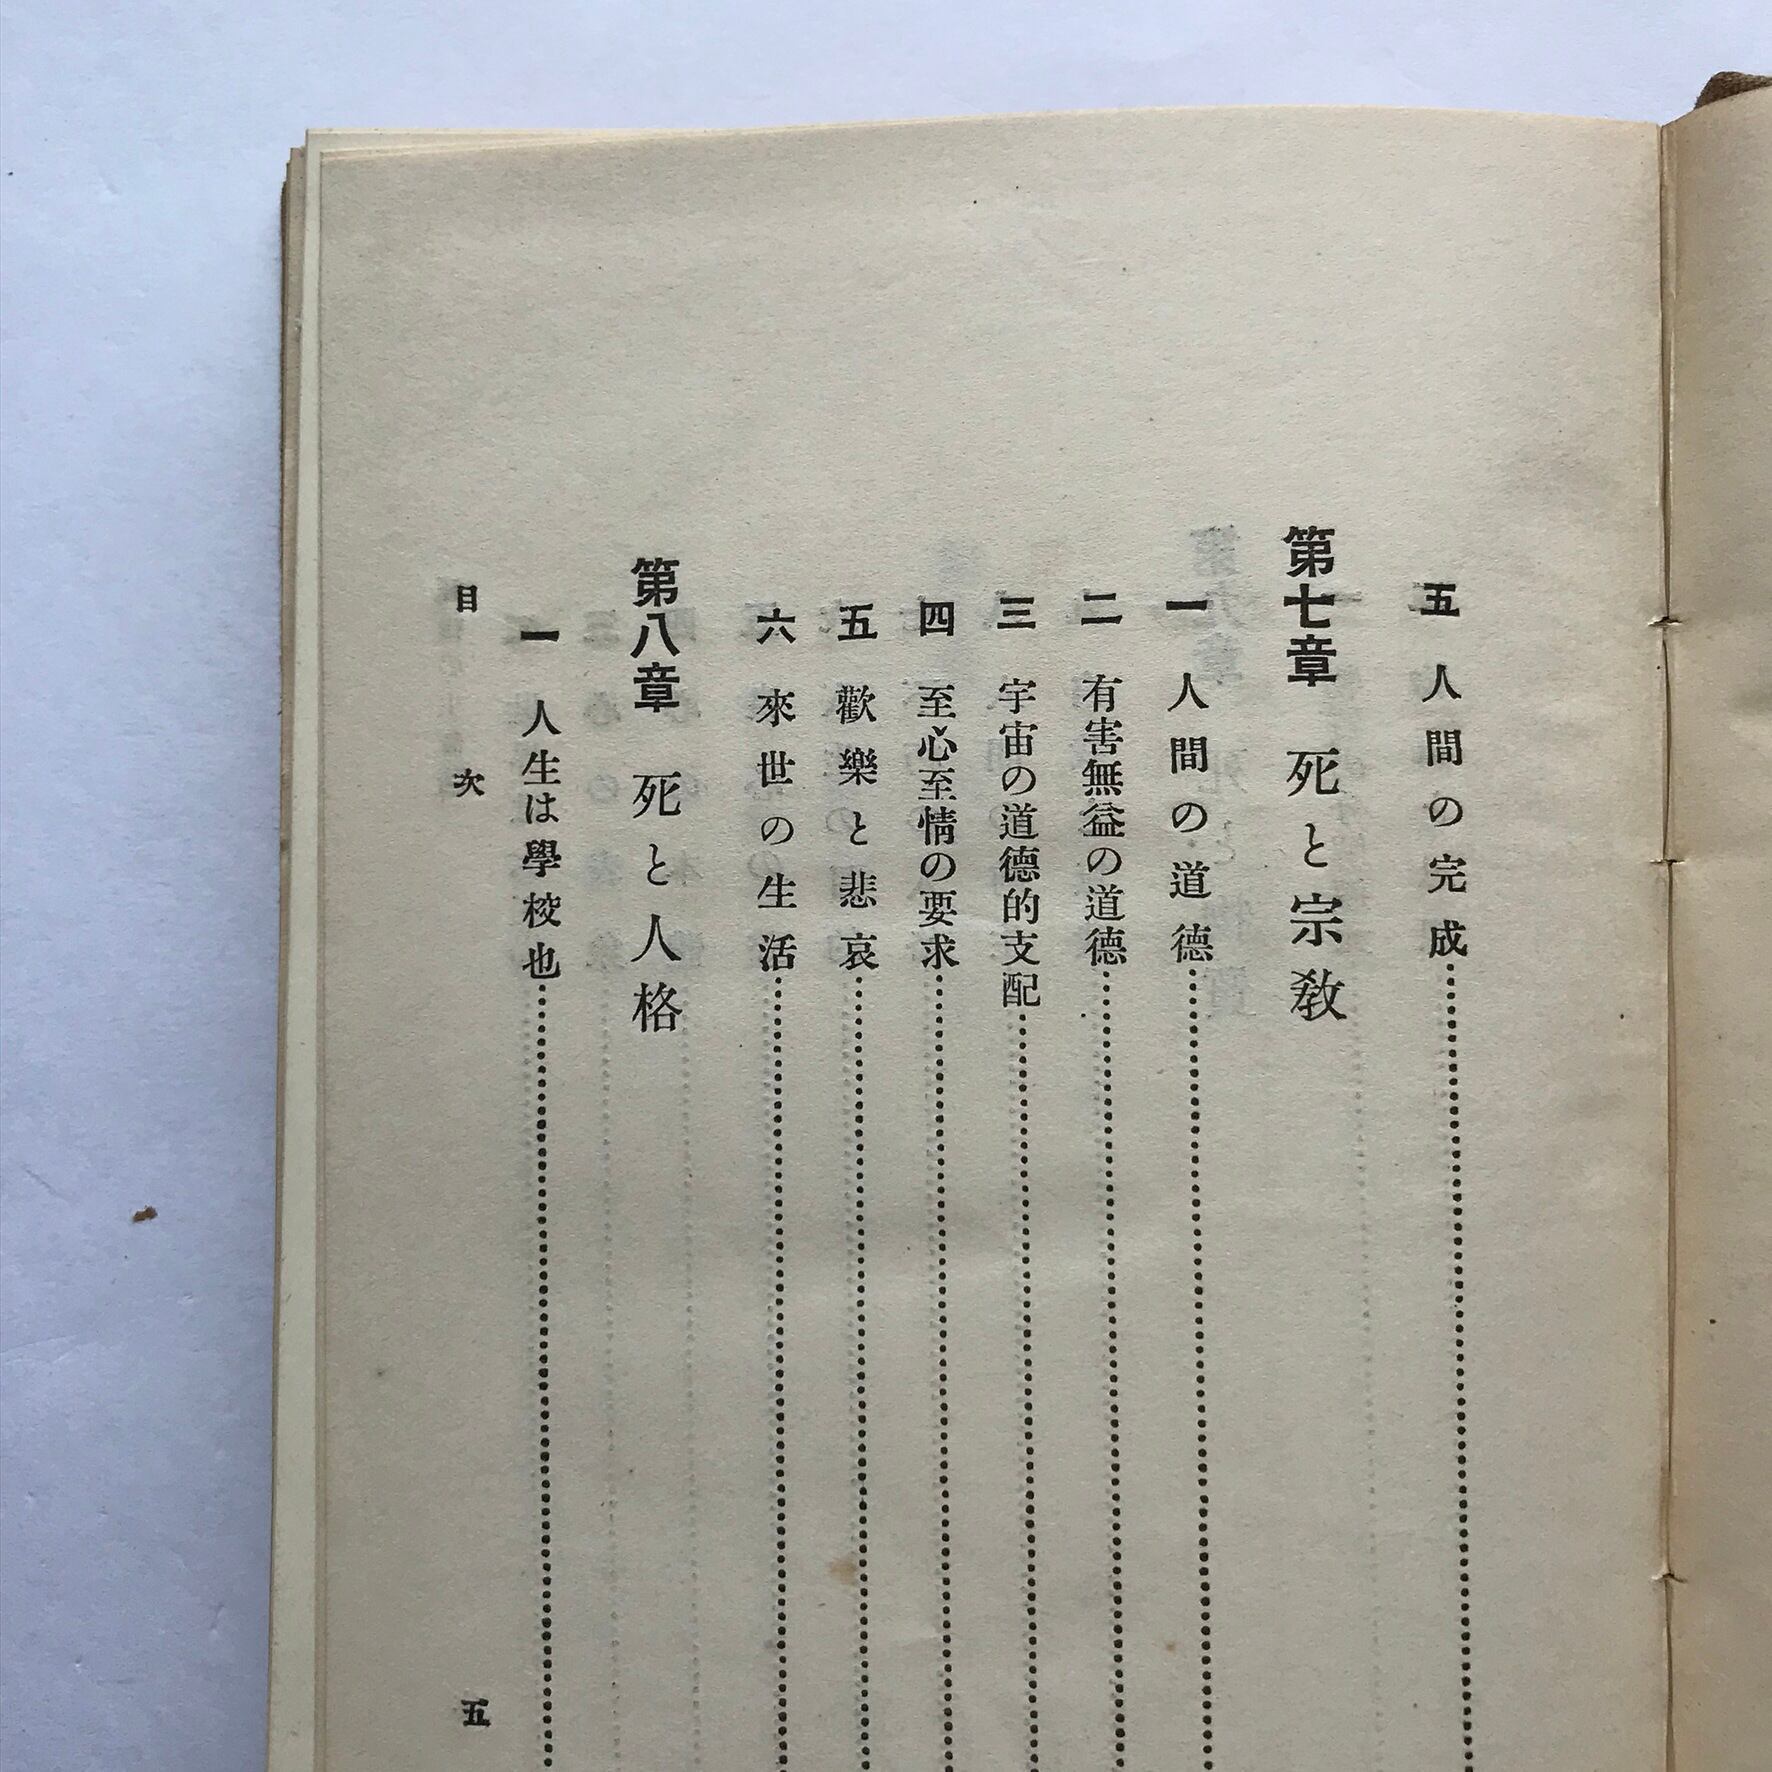 五 人間の完成
第七章 死と宗教
一 人間の道德
二 有害無益の道德
三 宇宙の道德的支配
四 至心至情の要求
五 歡樂と悲哀
六 來世の生活
第八章 死と人格
一 人生は學校也
目次
五